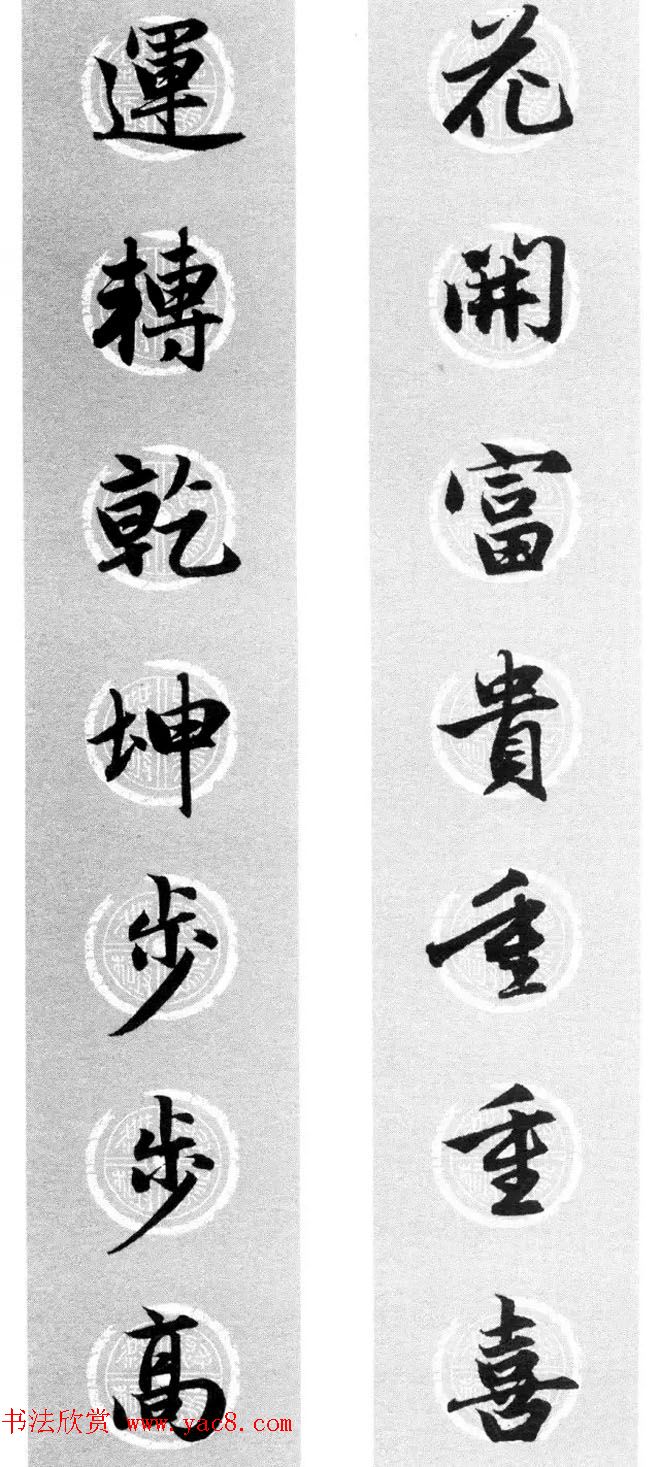 花開富貴重重喜
運轉乾坤步步高
书法欣赏 www.yac8.com